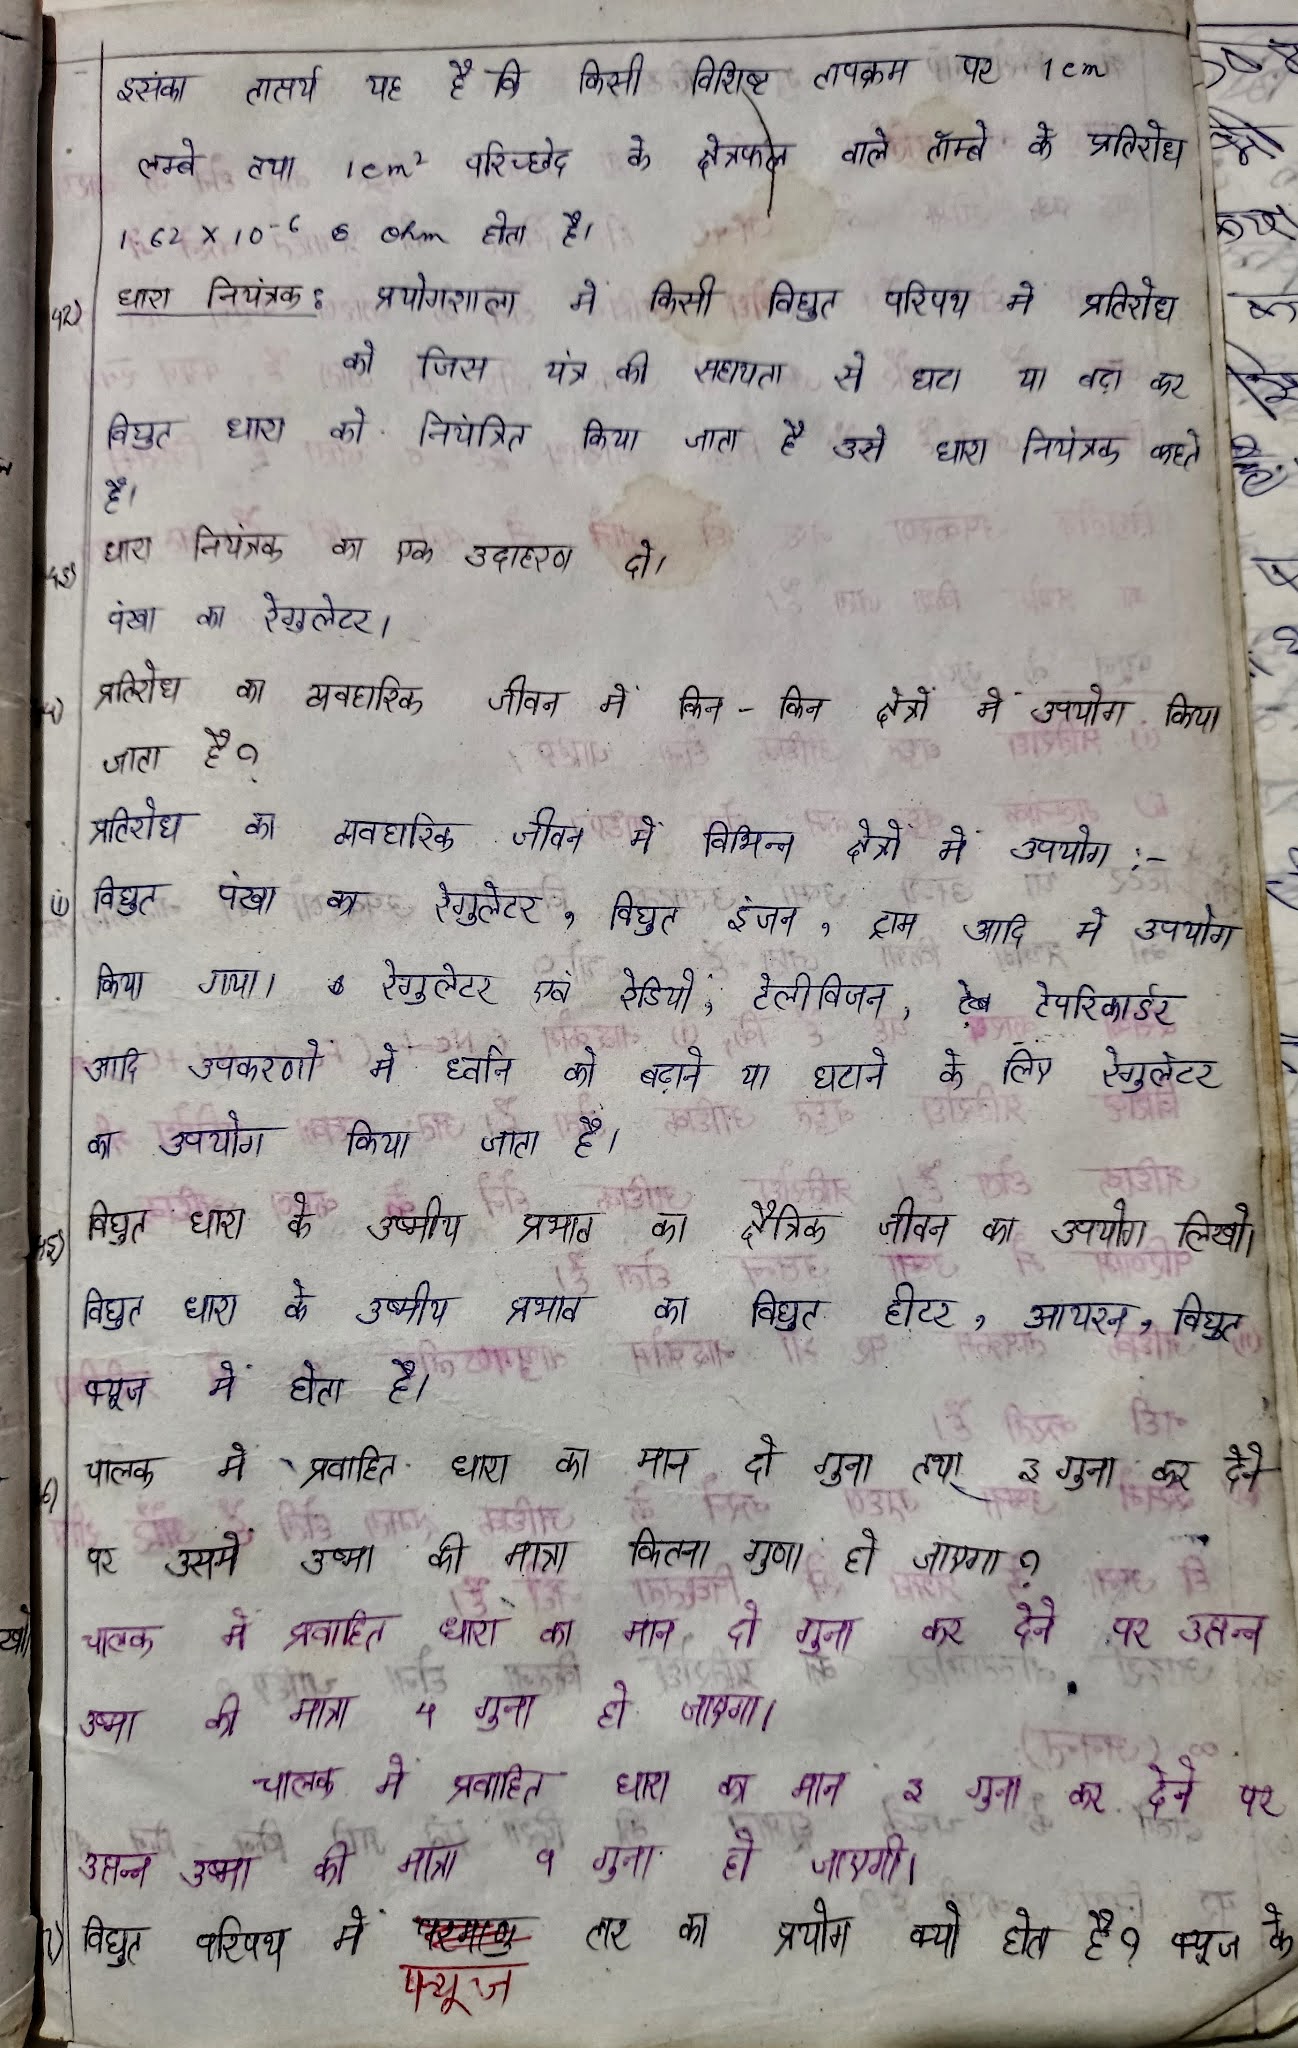 इसका तात्पर्य यह है कि किसी विशिष्ट तापक्रम पर 1 cm
लम्बे तथा 1 cm² परिच्छेद के क्षेत्रफल वाले ताँम्बे के प्रतिरोध
1.62 × 10⁻⁶ ohm होता है।
42) धारा नियंत्रक : प्रयोगशाला में किसी विद्युत परिपथ में प्रतिरोध
को जिस यंत्र की सहायता से घटा या बढ़ा कर
विद्युत धारा को नियंत्रित किया जाता है उसे धारा नियंत्रक कहते
है।
धारा नियंत्रक का एक उदाहरण दो।
पंखा का रेगुलेटर।
प्रतिरोध का व्यवहारिक जीवन में किन - किन क्षेत्रों में उपयोग किया
जाता है?
प्रतिरोध का व्यवहारिक जीवन में विभिन्न क्षेत्रों में उपयोग :-
(i) विद्युत पंखा का रेगुलेटर, विद्युत इंजन, ट्राम आदि में उपयोग
किया गया। रेगुलेटर एवं रेडियो, टेलीविजन, टेपरिकार्डर
आदि उपकरणों में ध्वनि को बढ़ाने या घटाने के लिए रेगुलेटर
का उपयोग किया जाता है।
विद्युत धारा के उष्मीय प्रभाव का क्षैत्रिक जीवन का उपयोग लिखो।
विद्युत धारा के उष्मीय प्रभाव का विद्युत हीटर, आयरन, विद्युत
फ्यूज में होता है।
चालक में प्रवाहित धारा का मान दो गुना तथा 3 गुना कर देने
पर उसमें उष्मा की मात्रा कितना गुणा हो जाएगा?
चालक में प्रवाहित धारा का मान दो गुना कर देने पर उत्पन्न
उष्मा की मात्रा 4 गुना हो जाएगा।
चालक में प्रवाहित धारा का मान 3 गुना कर देने पर
उत्पन्न उष्मा की मात्रा 9 गुना हो जाएगी।
विद्युत परिपथ में तार का प्रयोग क्यों होता है? फ्यूज के
फ्यूज